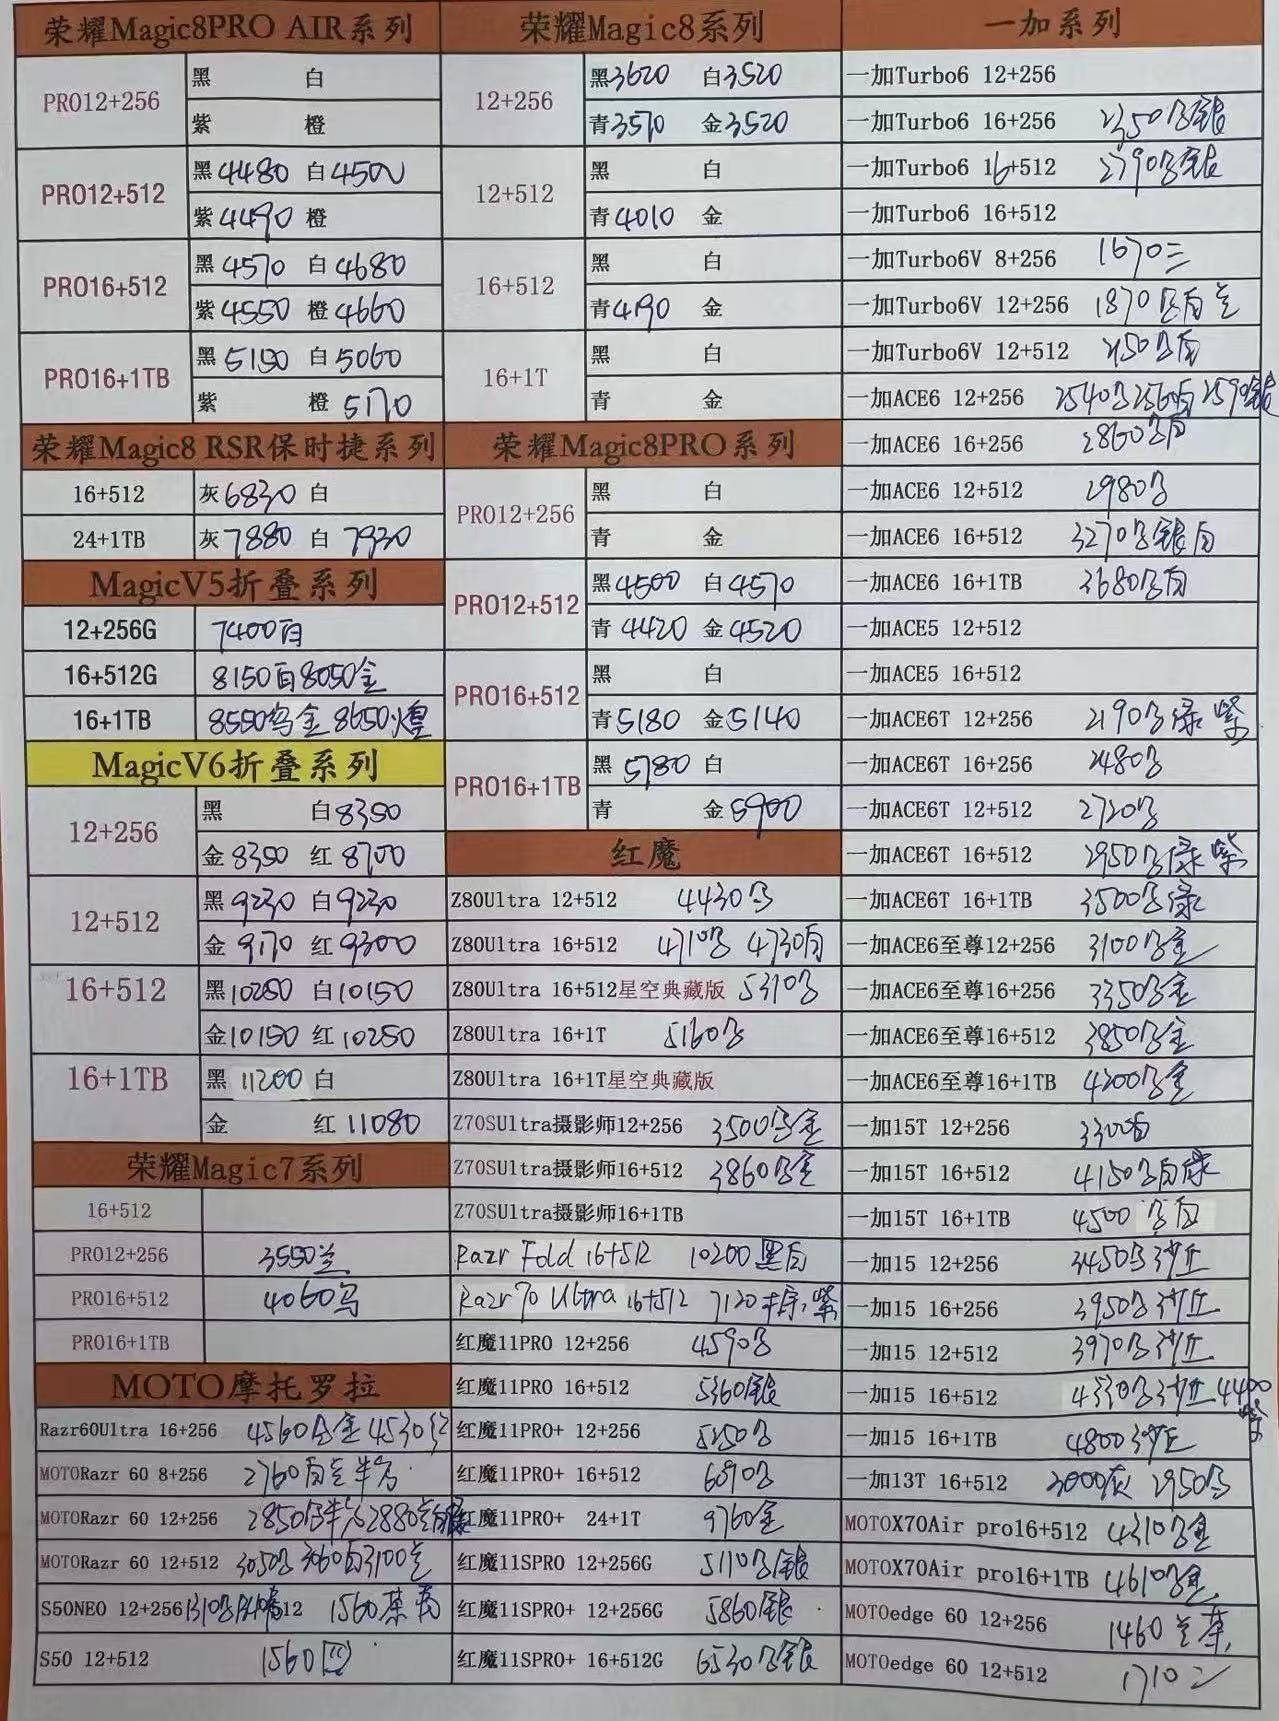 荣耀Magic8PRO AIR系列
PRO12+256
黑 白
紫 橙
PRO12+512
黑4480 白4500
紫4490 橙
PRO16+512
黑4570 白4680
紫4550 橙4660
PRO16+1TB
黑5150 白5060
紫 橙5170
荣耀Magic8 RSR保时捷系列
16+512 灰6830 白
24+1TB 灰7880 白7930
MagicV5折叠系列
12+256G 7400白
16+512G 8150白8050金
16+1TB 8550乌金 8650火皇
MagicV6折叠系列
12+256
黑 白8350
金8350 红8700
12+512
黑9230 白9230
金9170 红9300
16+512
黑10250 白10150
金10150 红10250
16+1TB
黑11200 白
金 红11080
荣耀Magic7系列
16+512
PRO12+256 3550兰
PRO16+512 4060乌
PRO16+1TB
MOTO摩托罗拉
Razr60Ultra 16+256 4560乌金 4530红
MOTORazr 60 8+256 2760白兰牛乌
MOTORazr 60 12+256 2850
MOTORazr 60 12+512 3050乌 3060白3100兰
S50NEO 12+256 1310 12 1560茶
S50 12+512 1560四
荣耀Magic8系列
12+256
黑3620 白3520
青3570 金3520
12+512
黑 白
青4010 金
16+512
黑 白
青4190 金
16+1T
黑 白
青 金
荣耀Magic8PRO系列
PRO12+256
黑 白
青 金
PRO12+512
黑4500 白4570
青4420 金4520
PRO16+512
黑 白
青5180 金5140
PRO16+1TB
黑5780 白
青 金5900
红魔
Z80Ultra 12+512 4430乌
Z80Ultra 16+512 4710乌 4730白
Z80Ultra 16+512星空典藏版 5310乌
Z80Ultra 16+1T 5160乌
Z80Ultra 16+1T星空典藏版
Z70SUltra摄影师12+256 3500乌金
Z70SUltra摄影师16+512 3860乌金
Z70SUltra摄影师16+1TB
Razr Fold 16+512 10200黑白
Razr 70 Ultra 16+512 7120 紫
红魔11PRO 12+256 4590乌
红魔11PRO 16+512 5360银
红魔11PRO+ 12+256 5250乌
红魔11PRO+ 16+512 6090乌
红魔11PRO+ 24+1T 9760金
红魔11SPRO 12+256G 5110乌银
红魔11SPRO+ 12+256G 5860银
红魔11SPRO+ 16+512G 6530乌银
一加系列
一加Turbo6 12+256
一加Turbo6 16+256 2350乌银
一加Turbo6 16+512 2790乌银
一加Turbo6 16+512
一加Turbo6V 8+256 1670三
一加Turbo6V 12+256 1870乌白兰
一加Turbo6V 12+512 2150乌白
一加ACE6 12+256 2540乌2560白2590银
一加ACE6 16+256 2860乌白
一加ACE6 12+512 2980乌
一加ACE6 16+512 3270乌银白
一加ACE6 16+1TB 3680乌白
一加ACE5 12+512
一加ACE5 16+512
一加ACE6T 12+256 2190乌绿紫
一加ACE6T 16+256 2480乌
一加ACE6T 12+512 2720乌
一加ACE6T 16+512 2950乌绿紫
一加ACE6T 16+1TB 3500乌绿
一加ACE6至尊12+256 3100乌金
一加ACE6至尊16+256 3350乌金
一加ACE6至尊16+512 3850乌金
一加ACE6至尊16+1TB 4200乌金
一加15T 12+256 3300白
一加15T 16+512 4150乌白绿
一加15T 16+1TB 4500 乌白
一加15 12+256 3450乌沙丘
一加15 16+256 3950乌沙丘
一加15 12+512 3970乌沙丘
一加15 16+512 4330乌沙丘 4400紫
一加15 16+1TB 4800沙丘
一加13T 16+512 3000灰 2950乌
MOTOX70Air pro16+512 4310乌金
MOTOX70Air pro16+1TB 4610乌金
MOTOedge 60 12+256 1460兰茶
MOTOedge 60 12+512 1710二